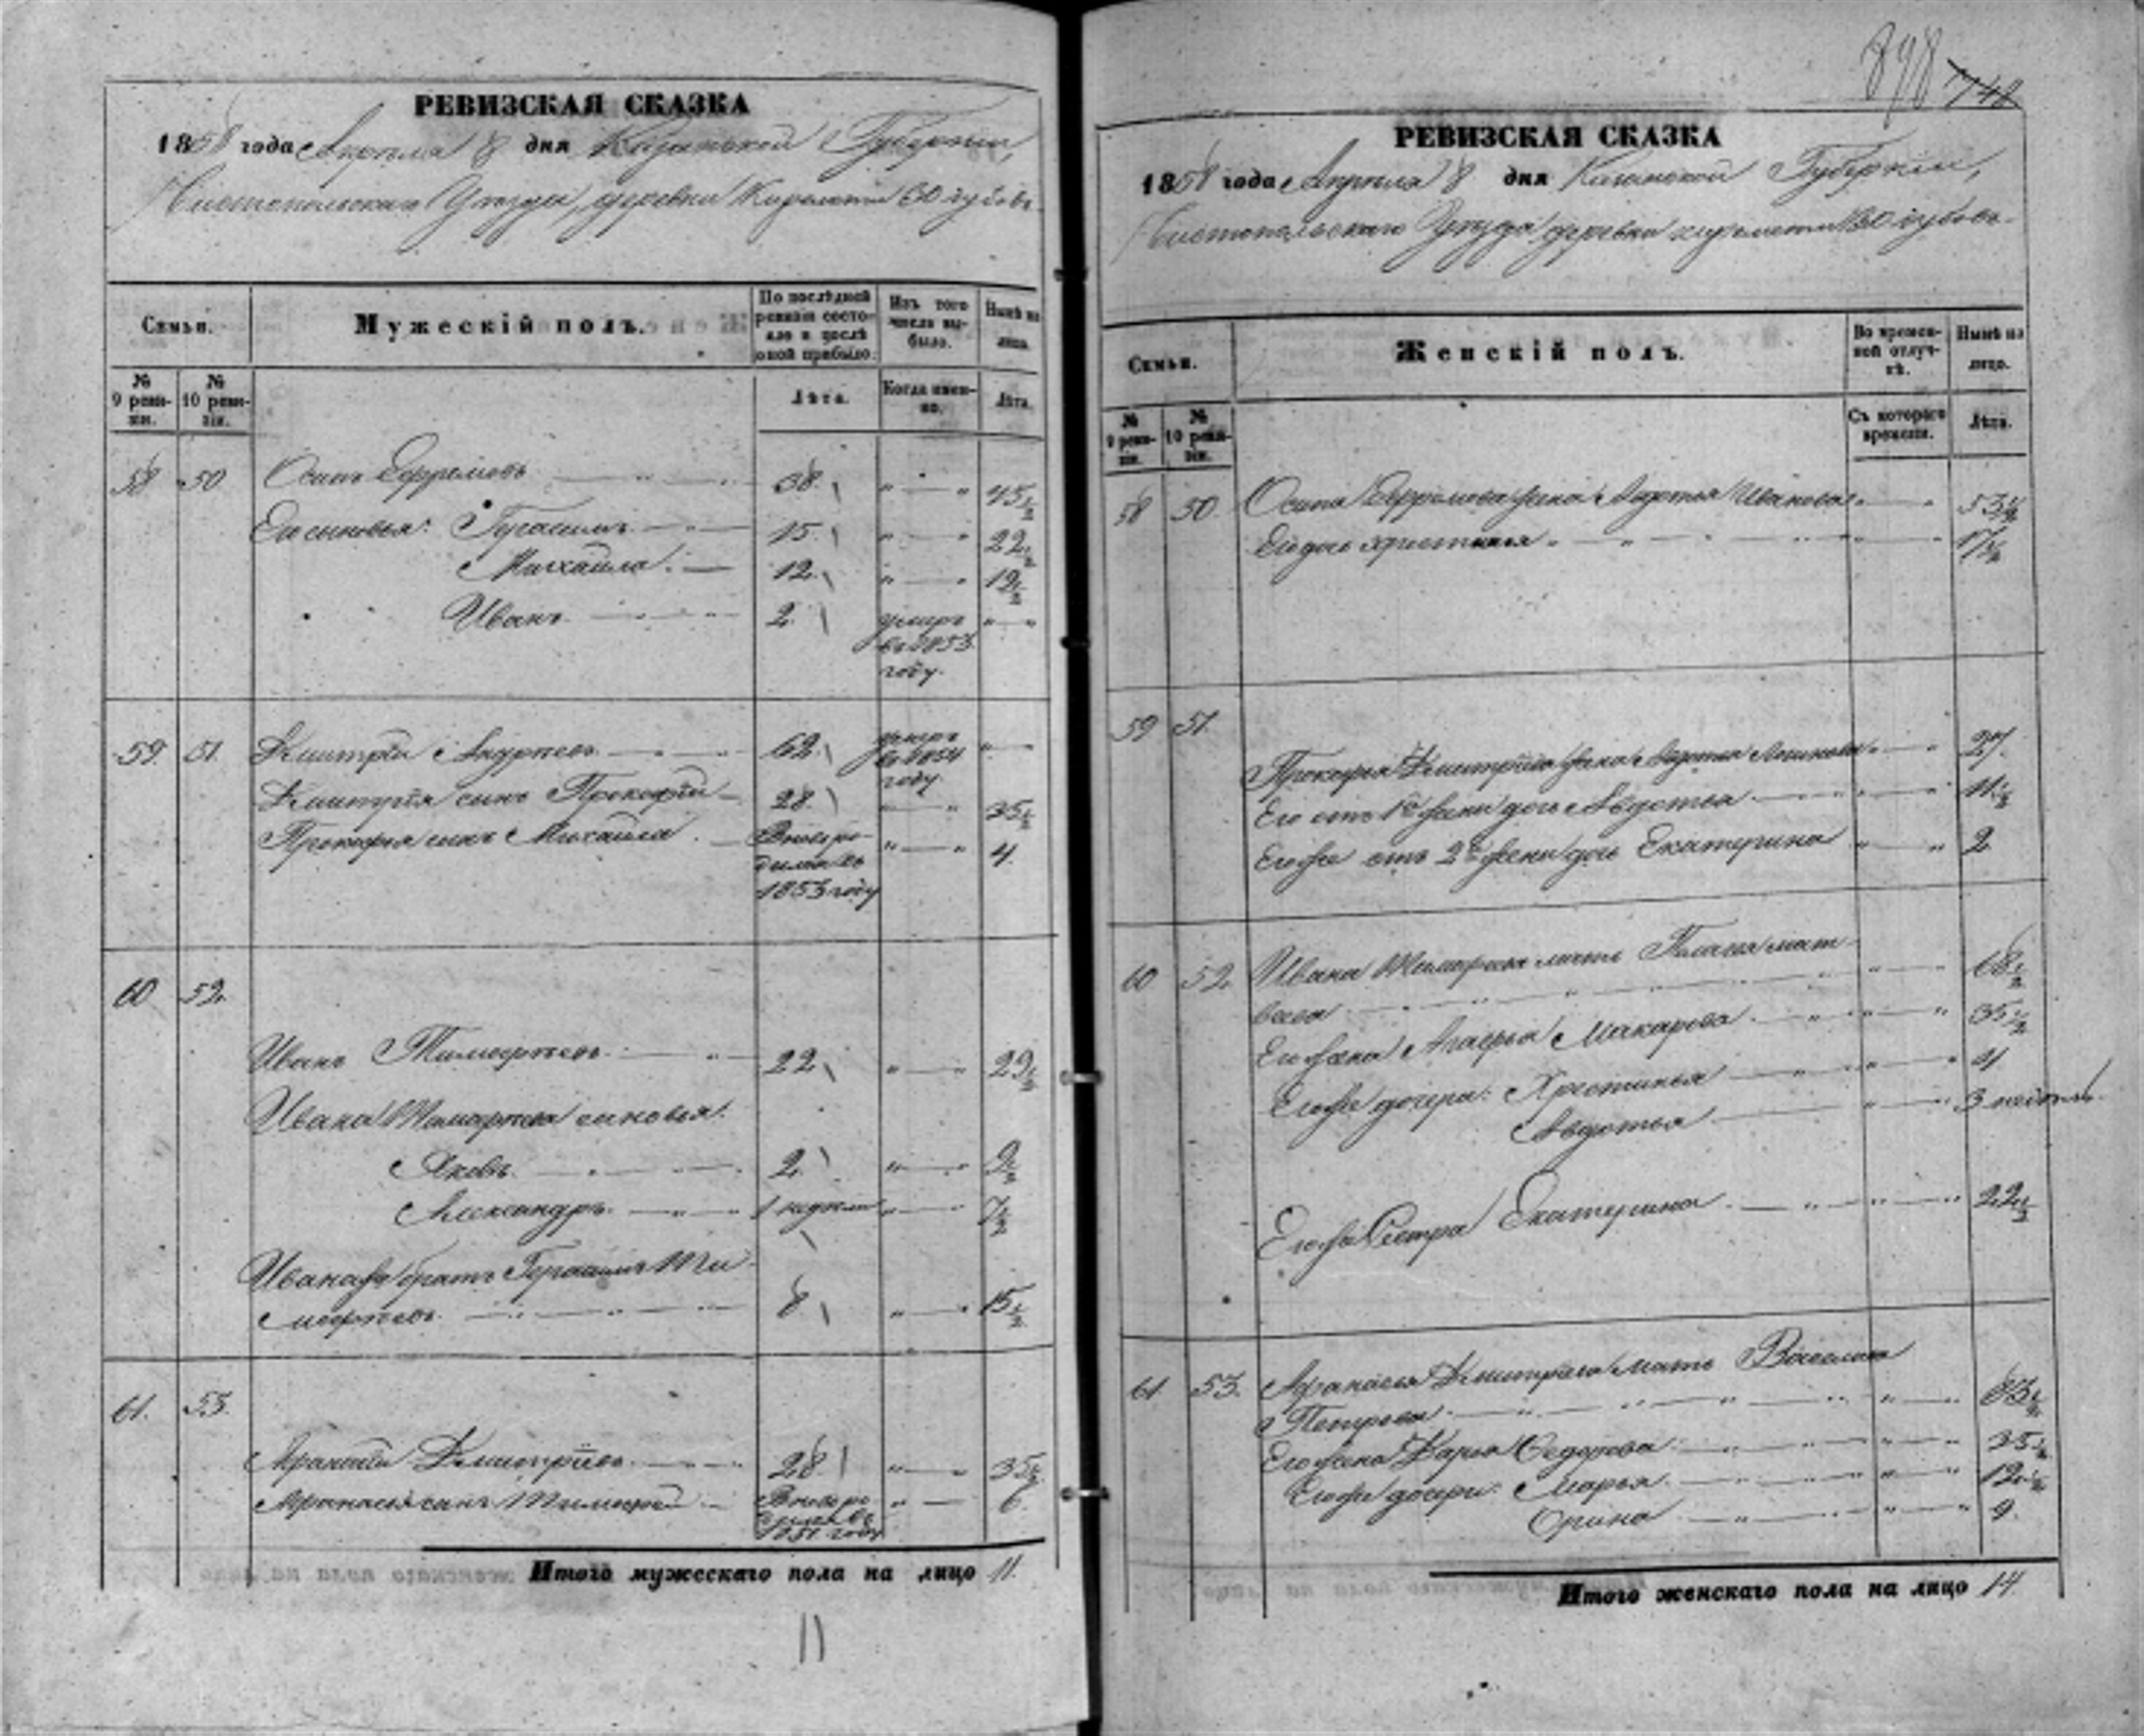 РЕВИЗСКАЯ СКАЗКА
1858 года Апреля 8 дня Казанской Губернии,
Чистопольскаго Уезда, деревни
Семьи.
Мужескій полъ.
По послѣдней ревизіи состояло и послѣ оной прибыло.
Изъ того числа выбыло.
Нынѣ на лицо.
№ 9 ревизіи.
№ 10 ревизіи.
Лѣта.
Когда именно.
Лѣта.
58 50 Осипъ Ефремовъ 38 45½
Его сыновья: Герасимъ 15 22½
Михайла 12 19½
Иванъ 2 умеръ въ 1853 году.
59. 51. Дмитрій Андреевъ 62 умеръ въ 1854 году
Дмитрія сынъ Прокофій 28 35½
Прокофья сынъ Михайла Вновь родился въ 1853 году 4.
60 52.
Иванъ Тимофеевъ 22 29½
Ивана Тимофеева сыновья:
Яковъ 2 9½
Александръ 1 недели 7½
Ивана братъ Герасимъ Ти-
мофеевъ 8 15½
61. 53.
Афанасій Дмитріевъ 28 35½
Афанасія сынъ Тимофей Вновь родился въ 1851 году 6.
Итого мужескаго пола на лицо 11.
11
898 748
РЕВИЗСКАЯ СКАЗКА
1858 года Апреля 8 дня Казанской Губерніи,
Чистопольскаго Уезда деревни
Семьи.
Женскій полъ.
Во временной отлучкѣ.
Нынѣ на лицо.
№ 9 ревизіи.
№ 10 ревизіи.
Съ котораго времени.
Лѣта.
58 50. Осипа Ефремова жена Авдотья Иванова 53½
Его дочь Христинья 17½
59 51.
Прокофья Дмитріева жена 27.
Его отъ 1й жены дочь Авдотья 11½
Его же отъ 2й жены дочь Екатерина 2
60 52. Ивана Тимофеева мать Пелагея Мат-
веева 68½
Его жена Агафья Макарова 35½
Его же дочери: Христинья 4
Авдотья 3 недель.
Его же Сестра Екатерина 22½
61. 53. Афанасья Дмитріева мать Василиса
Петрова
Его жена Дарья Федорова 35½
Его же дочери: Марья 12½
Орина 9.
Итого женскаго пола на лицо 14